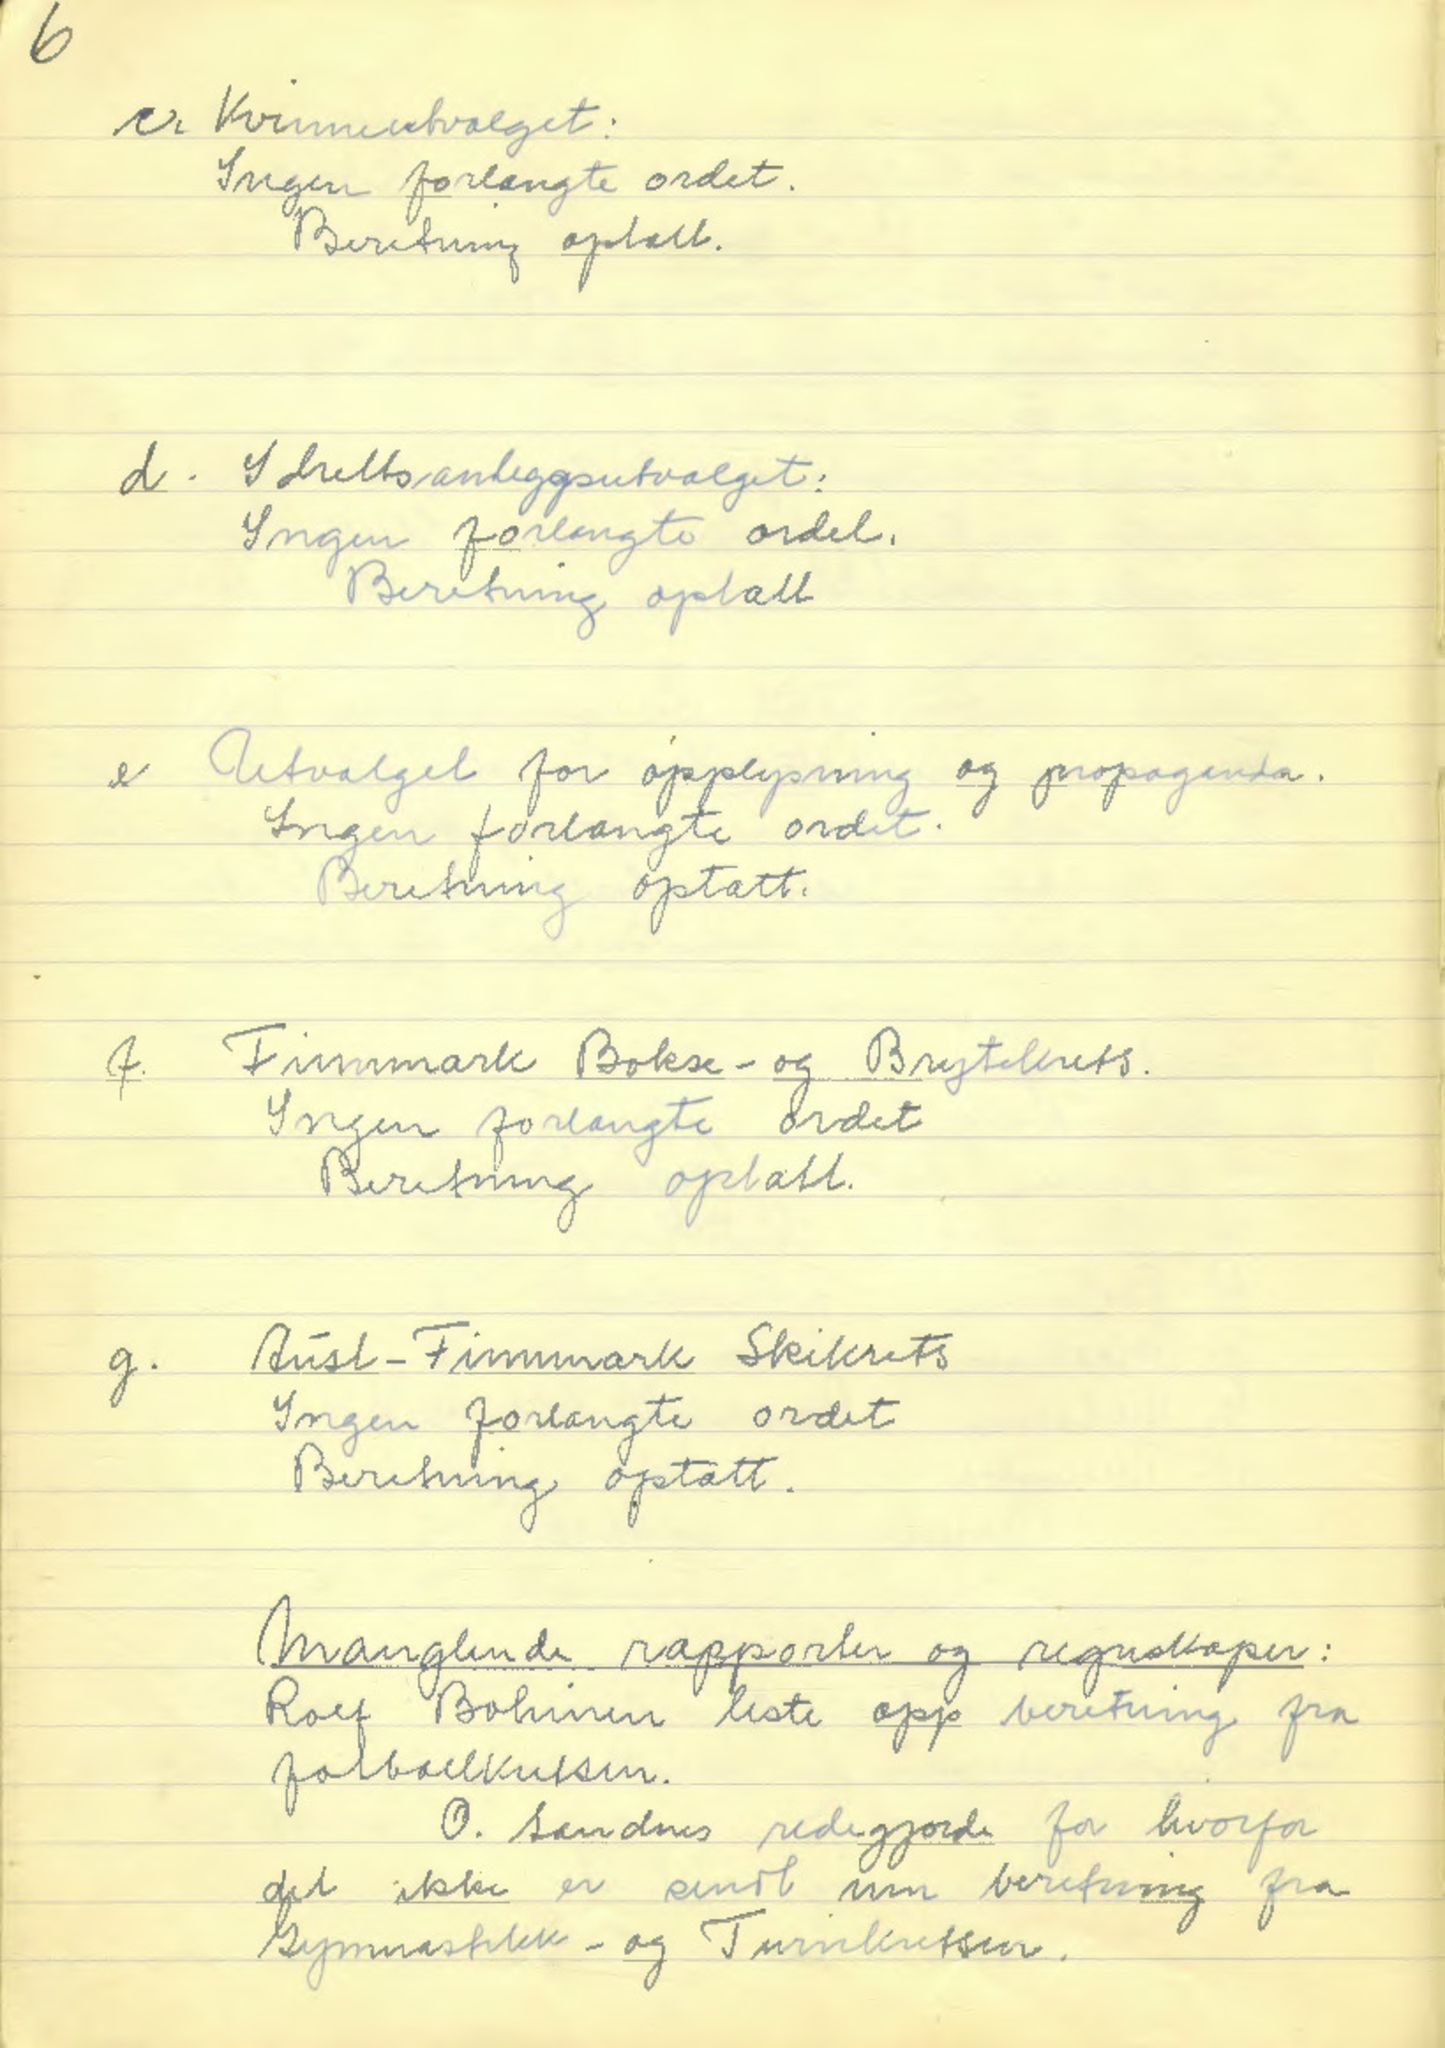 6
c. Kvinneutvalget:
Ingen forlangte ordet.
Beretning optatt.
d. Idrettsanleggsutvalget:
Ingen forlangte ordet.
Beretning optatt
e Utvalget for opplysning og propaganda.
Ingen forlangte ordet.
Beretning optatt.
f. Finnmark Bokse- og Brytekrets.
Ingen forlangte ordet
Beretning optatt.
g. Aust-Finnmark Skikrets
Ingen forlangte ordet
Beretning optatt.
Manglende rapporter og regnskaper:
Rolf Bohinen leste opp beretning fra
fotballkretsen.
O. Sandnes redegjorde for hvorfor
det ikke er sendt inn beretning fra
Gymnastikk- og Turnkretsen.